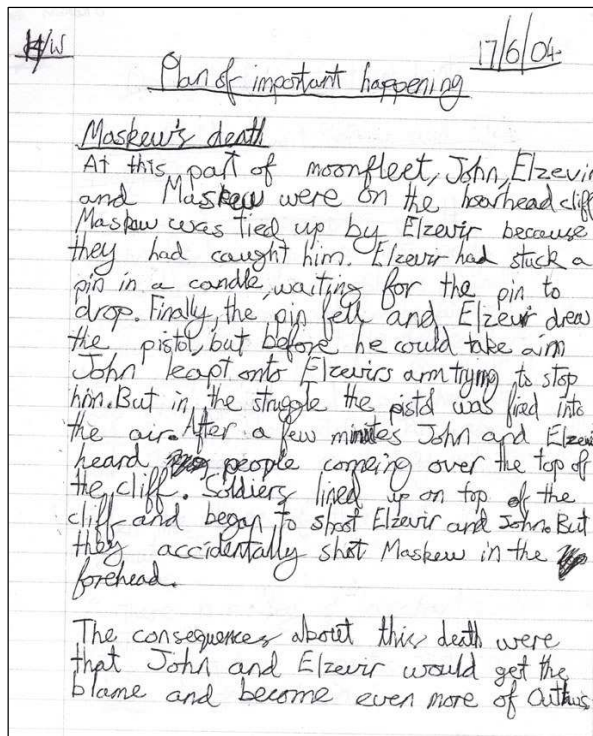 H/W
17/6/04
Plan of important happening
Maskew's death
At this part of moonfleet, John, Elzevir
and Maskew were on the hoarhead cliff
Maskew was tied up by Elzevir because
they had caught him. Elzevir had stuck a
pin in a candle, waiting for the pin to
drop. Finally, the pin fell and Elzevir drew
the pistol, but before he could take aim
John leapt onto Elzevirs arm trying to stop
him. But in the struggle the pistol was fired into
the air. After a few minutes John and Elzevi
heard people comeing over the top of
the cliff. Soldiers lined up on top of the
cliff and began to shoot Elzevir and John. But
they accidentally shot Maskew in the
forehead.
The consequences about this death were
that John and Elzevir would get the
blame and become even more of